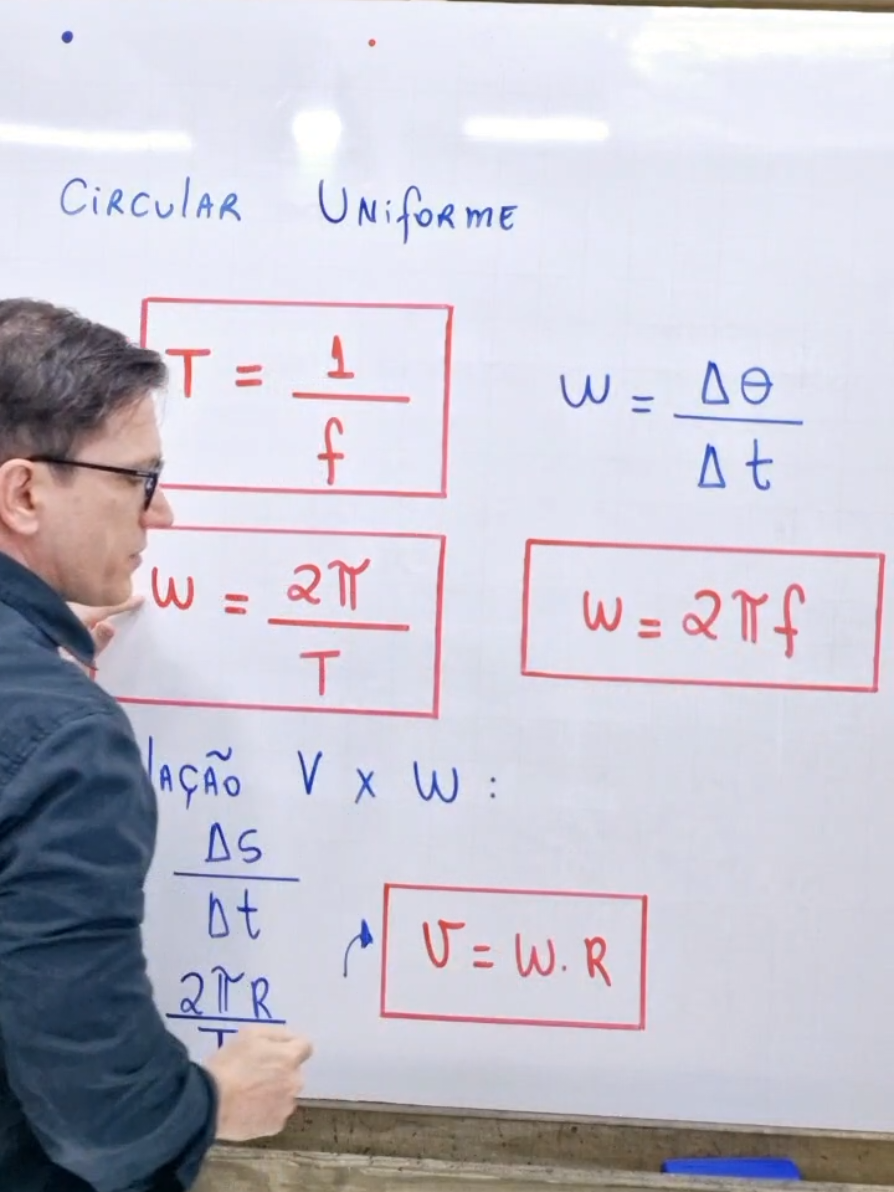 CIRCULAR UNIFORME
T = 1/f
W = Δθ/Δt
W = 2π/T
W = 2πf
lAÇÃO V x W :
ΔS/Δt
V = W. R
2πR/T